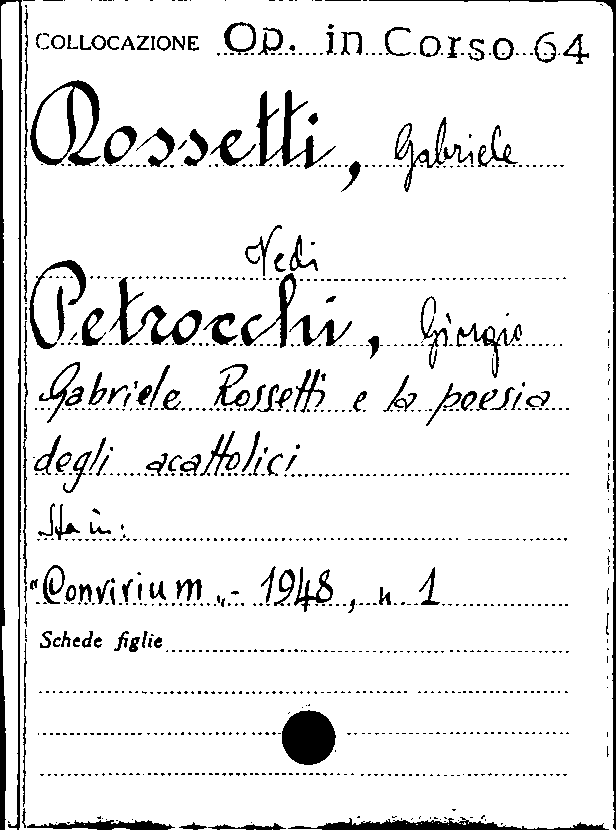 COLLOCAZIONE Op. in Corso 64
Rossetti, Gabriele
Vedi
Petrocchi, Giorgio
Gabriele Rossetti e la poesia
degli acattolici
Sta in:
"Convivium„ - 1948, n. 1
Schede figlie